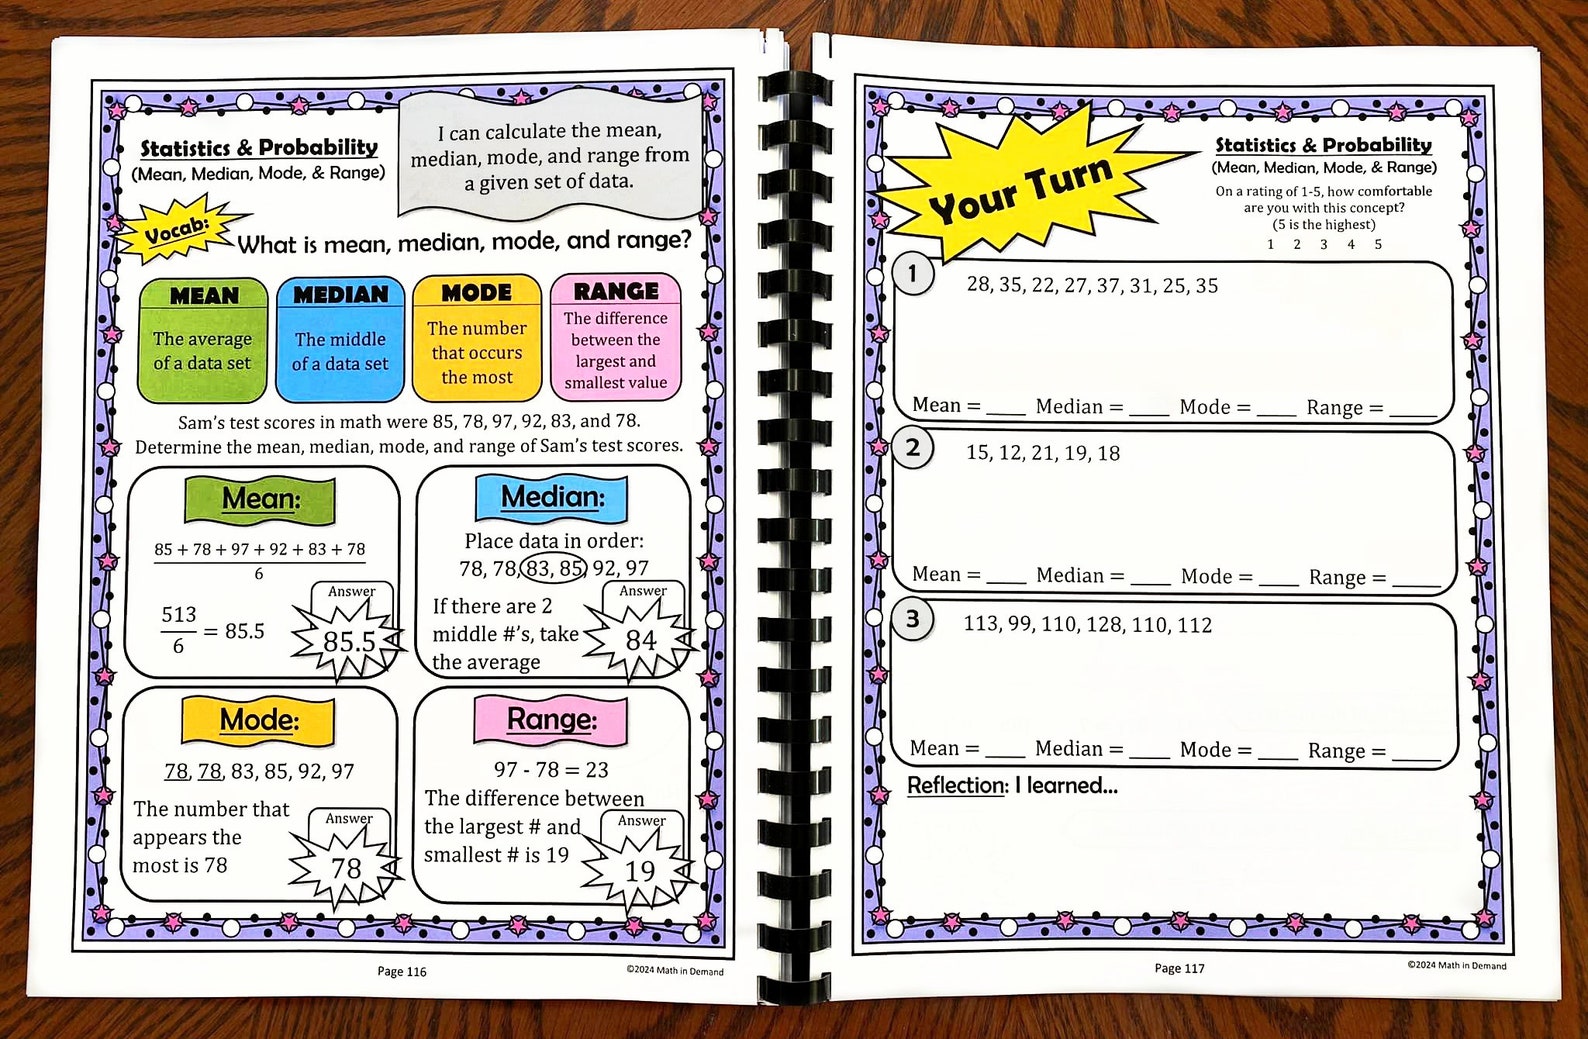 Statistics & Probability
(Mean, Median, Mode, & Range)
I can calculate the mean,
median, mode, and range from
a given set of data.
Vocab:
What is mean, median, mode, and range?
MEAN
The average
of a data set
MEDIAN
The middle
of a data set
MODE
The number
that occurs
the most
RANGE
The difference
between the
largest and
smallest value
Sam's test scores in math were 85, 78, 97, 92, 83, and 78.
Determine the mean, median, mode, and range of Sam's test scores.
Mean:
85 + 78 + 97 + 92 + 83 + 78
6
513
6
= 85.5
Answer
85.5
Median:
Place data in order:
78, 78, 83, 85, 92, 97
If there are 2
middle #'s, take
the average
Answer
84
Mode:
78, 78, 83, 85, 92, 97
The number that
appears the
most is 78
Answer
78
Range:
97 - 78 = 23
The difference between
the largest # and
smallest # is 19
Answer
19
Page 116
©2024 Math in Demand
Your Turn
Statistics & Probability
(Mean, Median, Mode, & Range)
On a rating of 1-5, how comfortable
are you with this concept?
(5 is the highest)
1 2 3 4 5
1
28, 35, 22, 27, 37, 31, 25, 35
Mean = ____ Median = ____ Mode = ____ Range = _____
2
15, 12, 21, 19, 18
Mean = ____ Median = ____ Mode = ____ Range = _____
3
113, 99, 110, 128, 110, 112
Mean = ____ Median = ____ Mode = ____ Range = _____
Reflection: I learned...
Page 117
©2024 Math in Demand